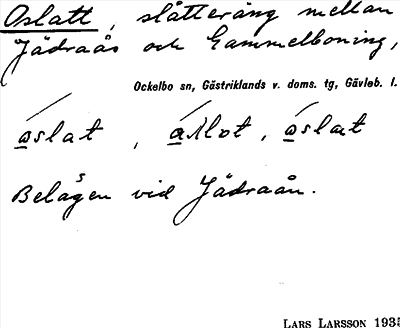 Oslatt, slåtteräng mellan
Jädraås och Gammelboning,
Ockelbo sn, Gästriklands v. doms. tg, Gävleb. l.
Belägen vid Jädraån.
LARS LARSSON 1935